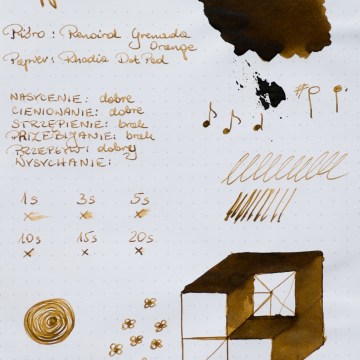 Pióro: Renoird Grenada
Orange
Papier: Rhodia DotPad
NASYCENIE: dobre
CIENIOWANIE: dobre
STRZĘPIENIE: brak
PRZEBIJANIE: brak
PRZEPŁYW: dobry
WYSYCHANIE:
1s 3s 5s
10s 15s 20s